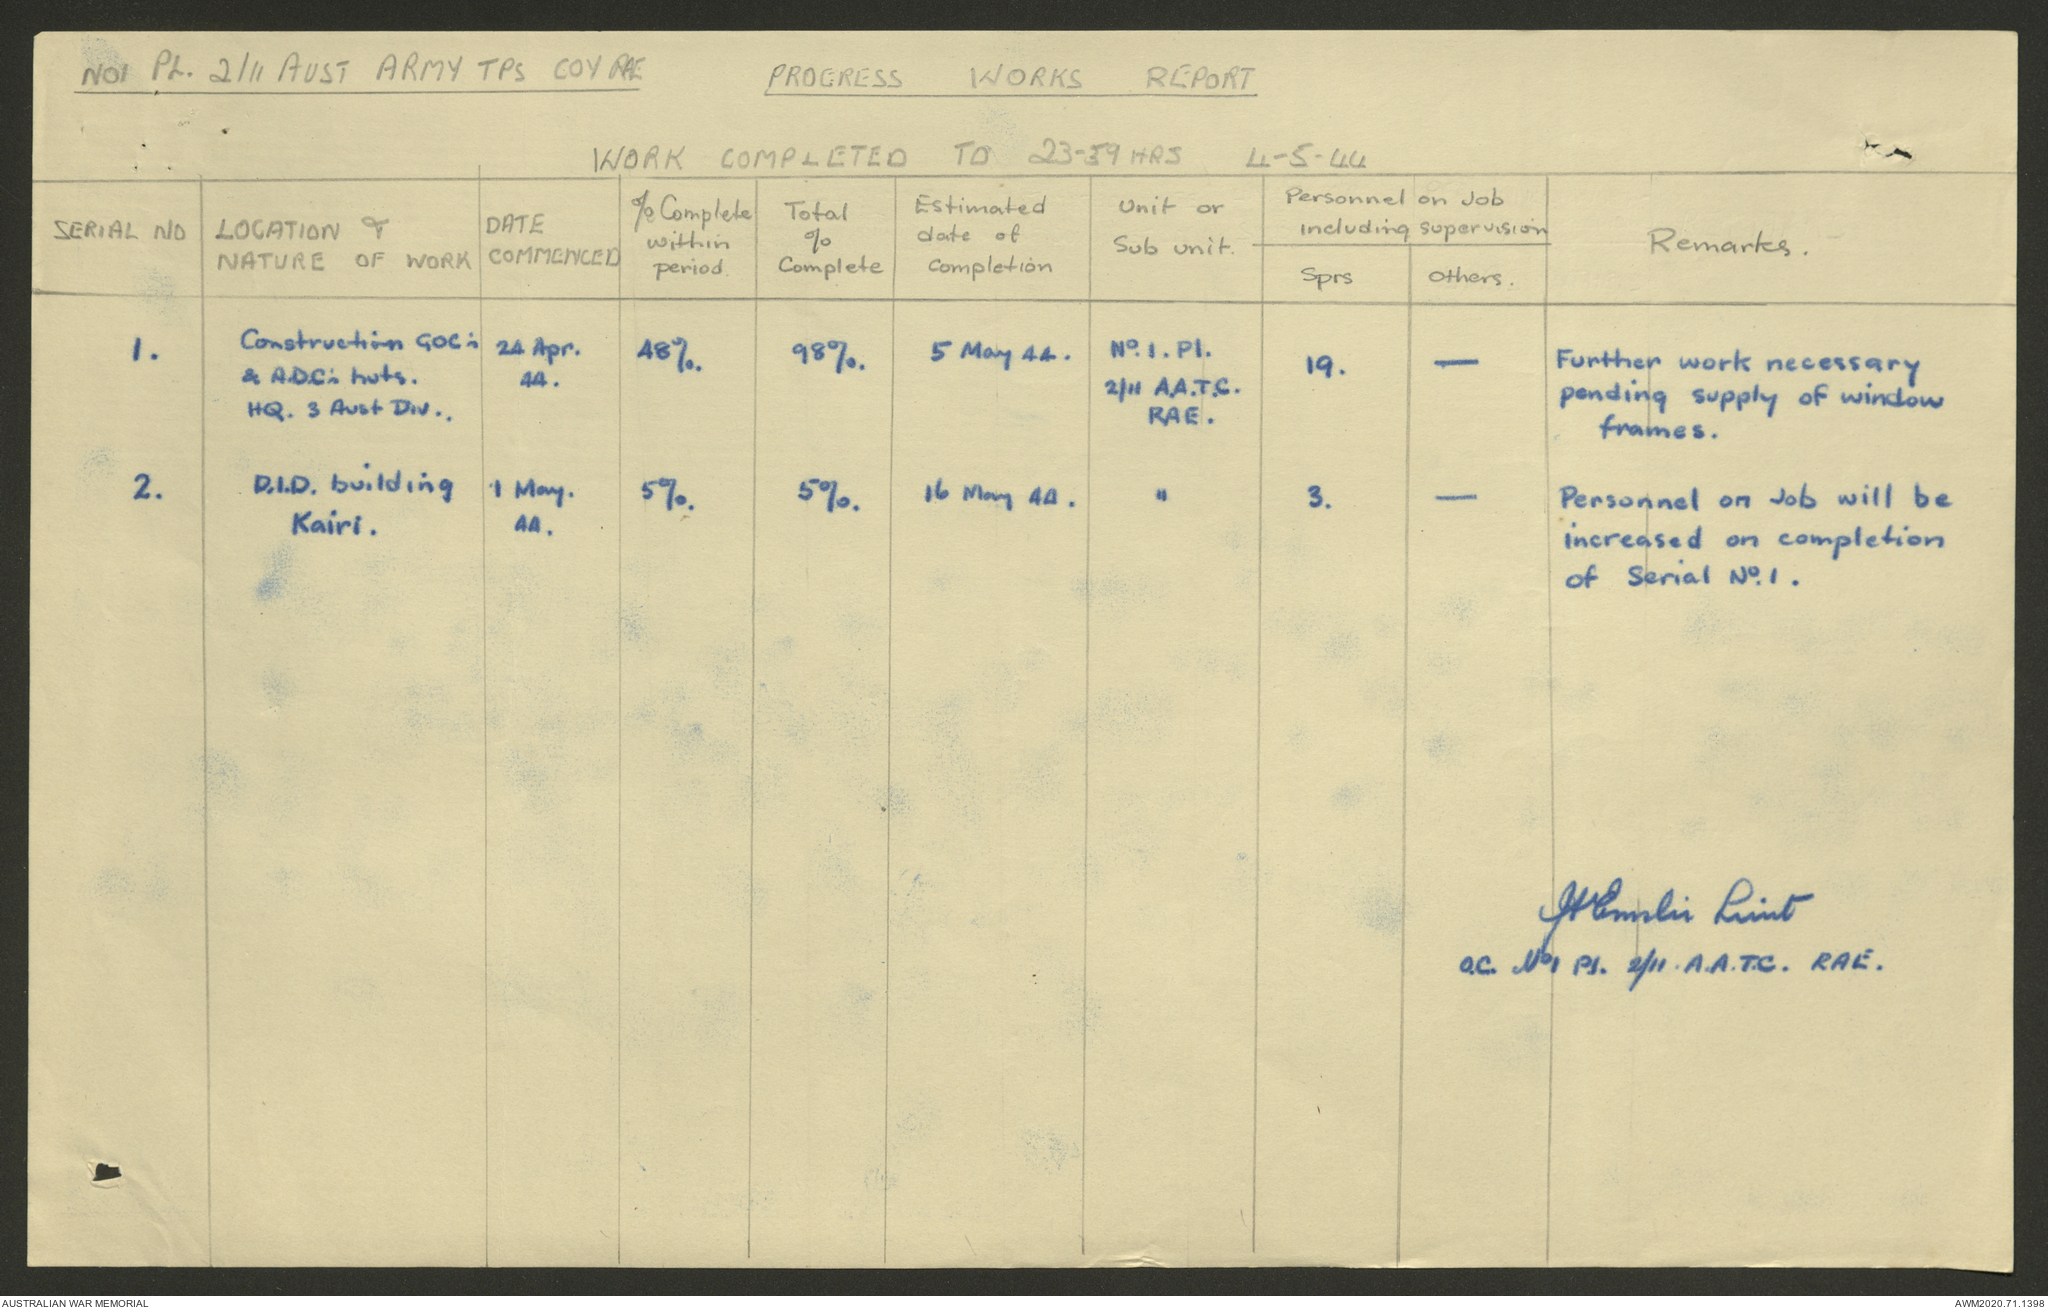 NO1 PL. 2/11 AUST ARMY TPS COY RAE
PROGRESS WORKS REPORT
WORK COMPLETED TO 23-59 HRS 4-5-44
SERIAL NO
LOCATION &
NATURE OF WORK
DATE
COMMENCED
% Complete
within
period
Total
%
Complete
Estimated
date of
completion
Unit or
Sub unit.
Personnel on Job
including supervision
Sprs
Others.
Remarks.
1.
Construction GOC's
& A.D.C's huts.
HQ. 3 Aust Div..
24 Apr.
44.
48%.
98%.
5 May 44.
No. 1. Pl.
2/11 A.A.T.C.
RAE.
19.
—
Further work necessary
pending supply of window
frames.
2.
D.I.D. building
Kairi.
1 May.
44.
5%.
5%.
16 May 44.
"
3.
—
Personnel on Job will be
increased on completion
of Serial No. 1.
Lieut
O.C. No1 Pl. 2/11. A.A.T.C. RAE.
AUSTRALIAN WAR MEMORIAL
AWM2020.71.1398